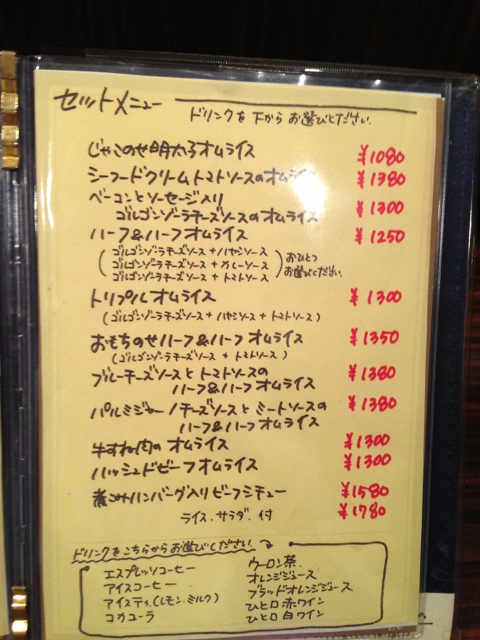 セットメニュー
ドリンクを下からお選びください。
じゃこのせ明太子オムライス ¥1080
シーフードクリームトマトソースのオムライス ¥1380
ベーコンとソーセージ入り
ゴルゴンゾーラチーズソースのオムライス ¥1300
ハーフ&ハーフオムライス ¥1250
(ゴルゴンゾーラチーズソース+ハヤシソース
ゴルゴンゾーラチーズソース+カレーソース
ゴルゴンゾーラチーズソース+トマトソース)
おひとつ
お選びください。
トリプルオムライス ¥1300
(ゴルゴンゾーラチーズソース+ハヤシソース+トマトソース)
おもちのせハーフ&ハーフオムライス ¥1350
(ゴルゴンゾーラチーズソース+トマトソース)
ブルーチーズソースとトマトソースの
ハーフ&ハーフオムライス ¥1380
パルミジャーノチーズソースとミートソースの
ハーフ&ハーフオムライス ¥1380
牛すね肉のオムライス ¥1300
ハッシュドビーフオムライス ¥1300
煮込みハンバーグ入りビーフシチュー ¥1580
ライス.サラダ.付 ¥1780
ドリンクをこちらからお選びください。
エスプレッソコーヒー
アイスコーヒー
アイスティ(レモン.ミルク)
コカコーラ
ウーロン茶.
オレンジジュース
ブラッドオレンジジュース
ひと口赤ワイン
ひと口白ワイン